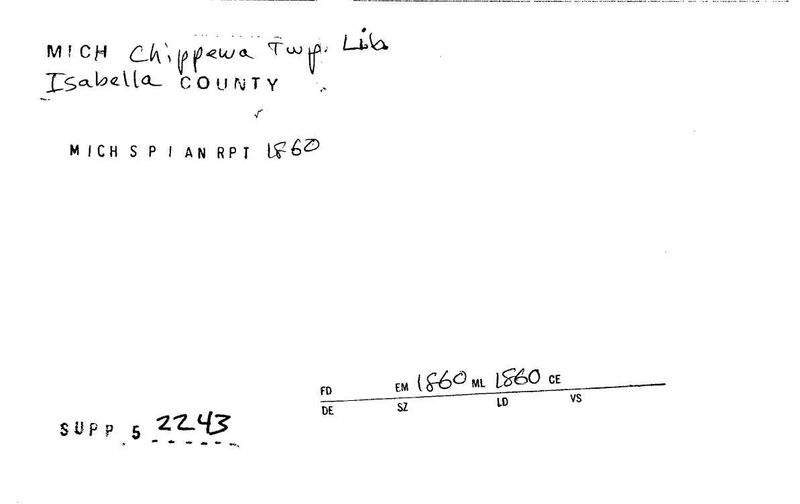 MICH Chippewa Twp. Lib
Isabella COUNTY
MICH S P I AN RPT 1860
FD EM 1860 ML 1860 CE
DE SZ LD VS
SUPP 5 2243